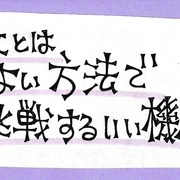 ことは、
ない方法で
挑戦するいい機